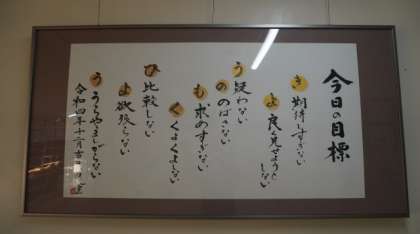 今日の目標
き 期待しすぎない
よ 良く見せようとしない
う 疑わない
の のばさない
も 求めすぎない
く くよくよしない
ひ 比較しない
よ 欲張らない
う うらやましがらない
令和四年十二月吉日